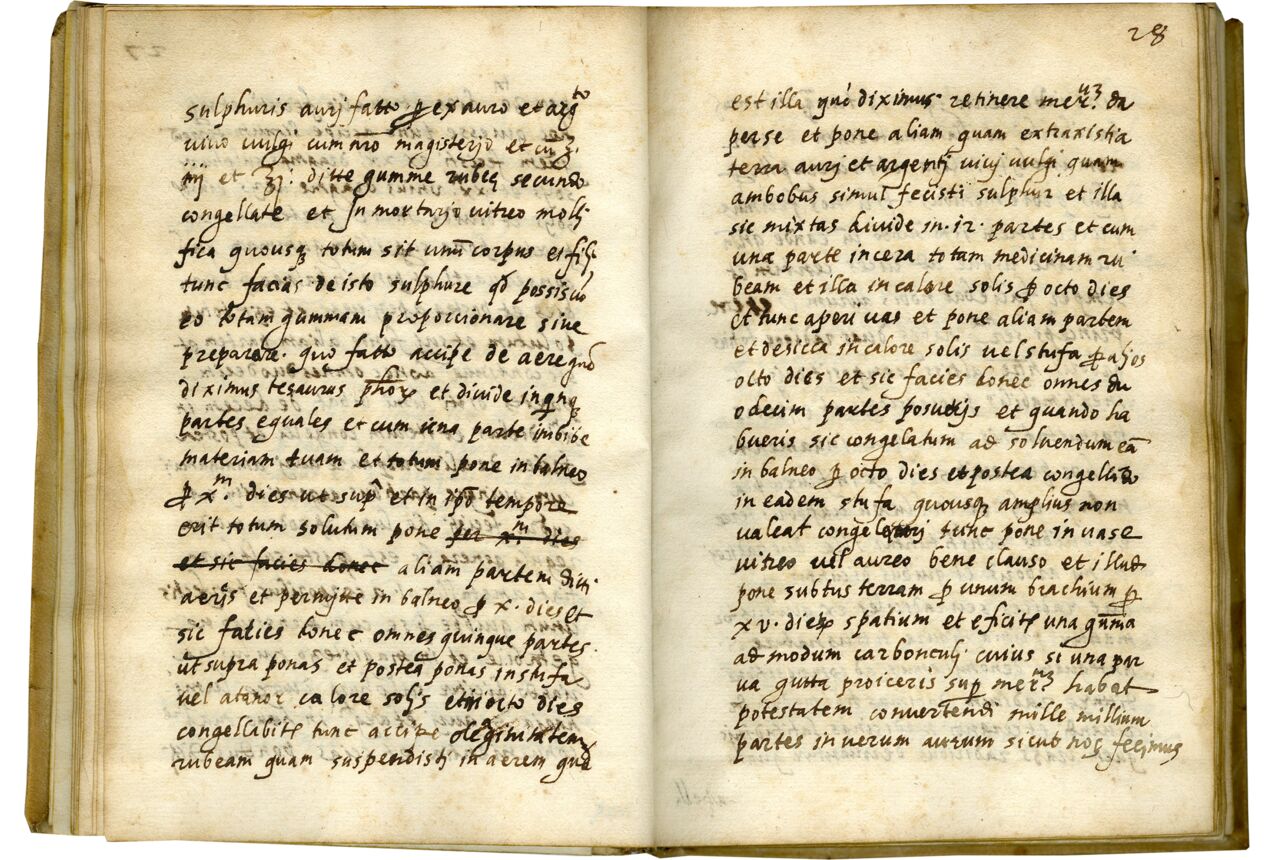 sulphuris aurj fatto ꝑ ex auro et argto
vivo vulgi cum nro magisterjo et cu ʒ.
iiij et ʒj: ditte gumme rubeę secundo
congellate et In mortarjo vitreo molli
fica quousqʒ totum sit unū corpus
tunc facias de isto sulphure qd possis
eo totam gummam proporcionare sive
preparare. quo fatto accipe de aere quo
diximus tesaurus phorʒ et divide in qnqʒ
partes equales et cum una parte imbibe
materiam tuam et totum pone in balneo
ꝑ xm dies ut supa et in ipo tempore
erit totum solutum pone per xm dies
et sic facies donec aliam partem ditti
aerjs et permitte in balneo ꝑ x. dies et
sic faties donec omnes quinque partes.
ut supra ponas et postea ponas in stufa
vel atanor calore solis et in octo dies
congellabitr tunc accipe
rubeam quam suspendistj in aerem
28
est illa qua diximus retinere meruʒ? da
per se et pone aliam quam extraxistia
terra aurj et argentj vivj vulgi quam
ambobus simul fecisti sulphur et illa
sic mixtas divide in .12. partes et cum
una parte incera totam medicinam ru
beam et illa in calore solis ꝑ octo dies
et tunc aperi vas et pone aliam partem
et desicca in calore solis vel stufa ꝑ alios
octo dies et sic facies donec omnes du
odecim partes posuerjs et quando ha
bueris sic congelatum ad solvendum eā
in balneo ꝑ octo dies et postea congellādo
in eadem stufa quousqʒ amplius non
valeat congelari tunc pone in vase
vitreo vel aureo bene clauso et illud
pone subtus terram ꝑ unum brachium ꝑ
xv. dierʒ spatium et eficitr una gūma
ad modum carbonculj cuius si una par
va gutta proiceris sup meruʒ habet
potestatem convertendi mille millium
partes in verum aurum sicut nos fecimus